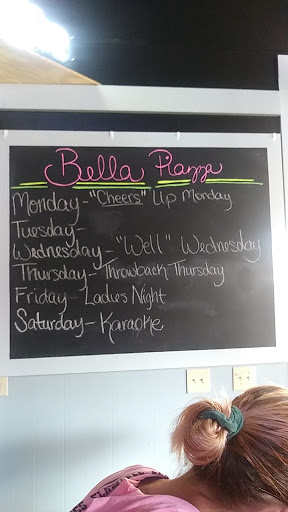 Bella Piazza
Monday - "Cheers" Up Monday
Tuesday -
Wednesday - "Well" Wednesday
Thursday - Throwback Thursday
Friday - Ladies Night
Saturday - Karaoke